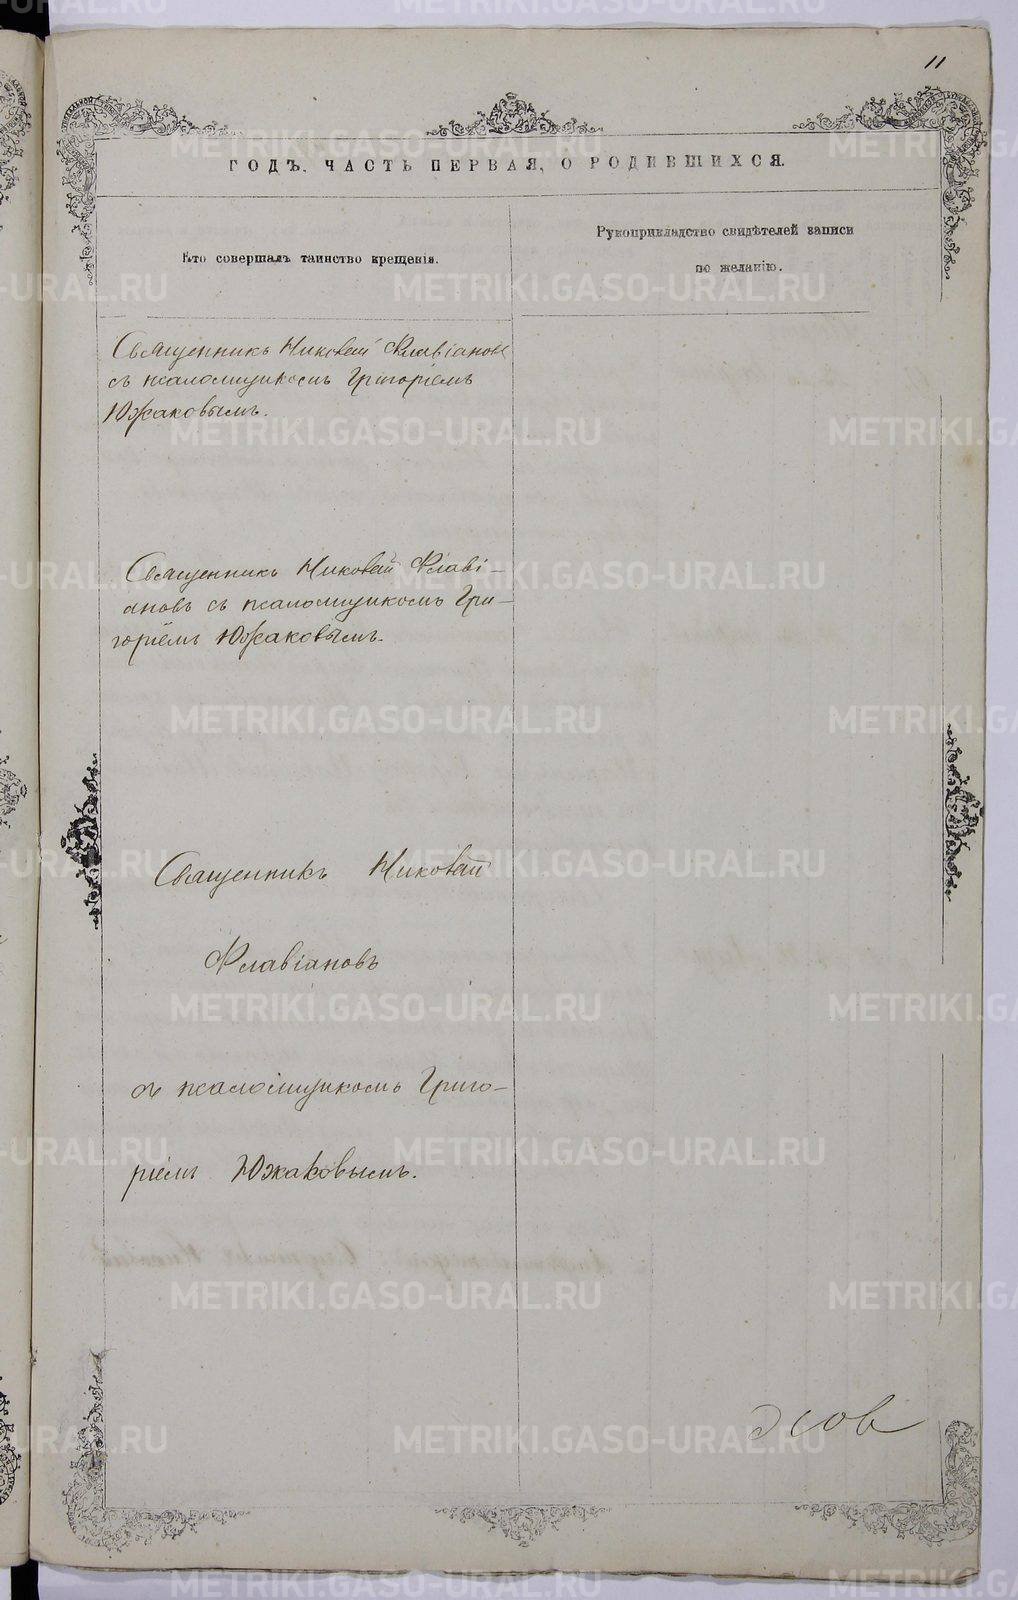 11
ГОДЪ. ЧАСТЬ ПЕРВАЯ, О РОДИВШИХСЯ.
Кто совершалъ таинство крещенія.
Рукоприкладство свидѣтелей записи
по желанію.
Священникъ Николай Флавіановъ
съ псаломщикомъ Григоріемъ
Южаковымъ.
Священникъ Николай Флаві-
ановъ съ псаломщикомъ Гри-
горіемъ Южаковымъ.
Священникъ Николай
Флавіановъ
съ псаломщикомъ Григо-
ріемъ Южаковымъ.
METRIKI.GASO-URAL.RU